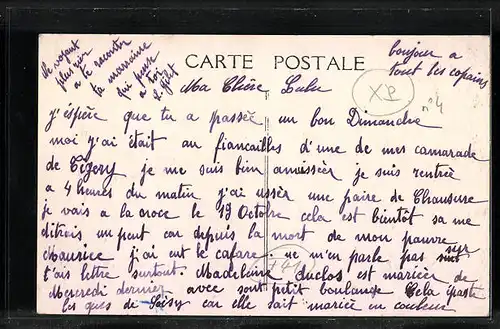 CARTE POSTALE
bonjour a
tout les copains
ne voyant
plus rien
a te raconter
ta marraine
qui pense
a toi
XP
n°4
Ma Chère Lulu
j'espère que tu a passée un bon Dimanche
moi j'ai était au fiancailles d'une de mes camarade
de Tigery je me suis bien amvisser je suis rentrée
a 4 heures du matin j'ai usser une paire de Chausure
je vais a la noce le 19 Octobre cela est bientôt sa me
ditrois un peut car depuis la mort de mon pauvre
Maurice j'ai eut le cafare ne m'en parle pas sur
t'ais lettre surtout. Madeleine duclos est marièr de
Mercredi dernier avec sont petit boulanger Cela
les gues de Soisy car elle sait mariée en couleur